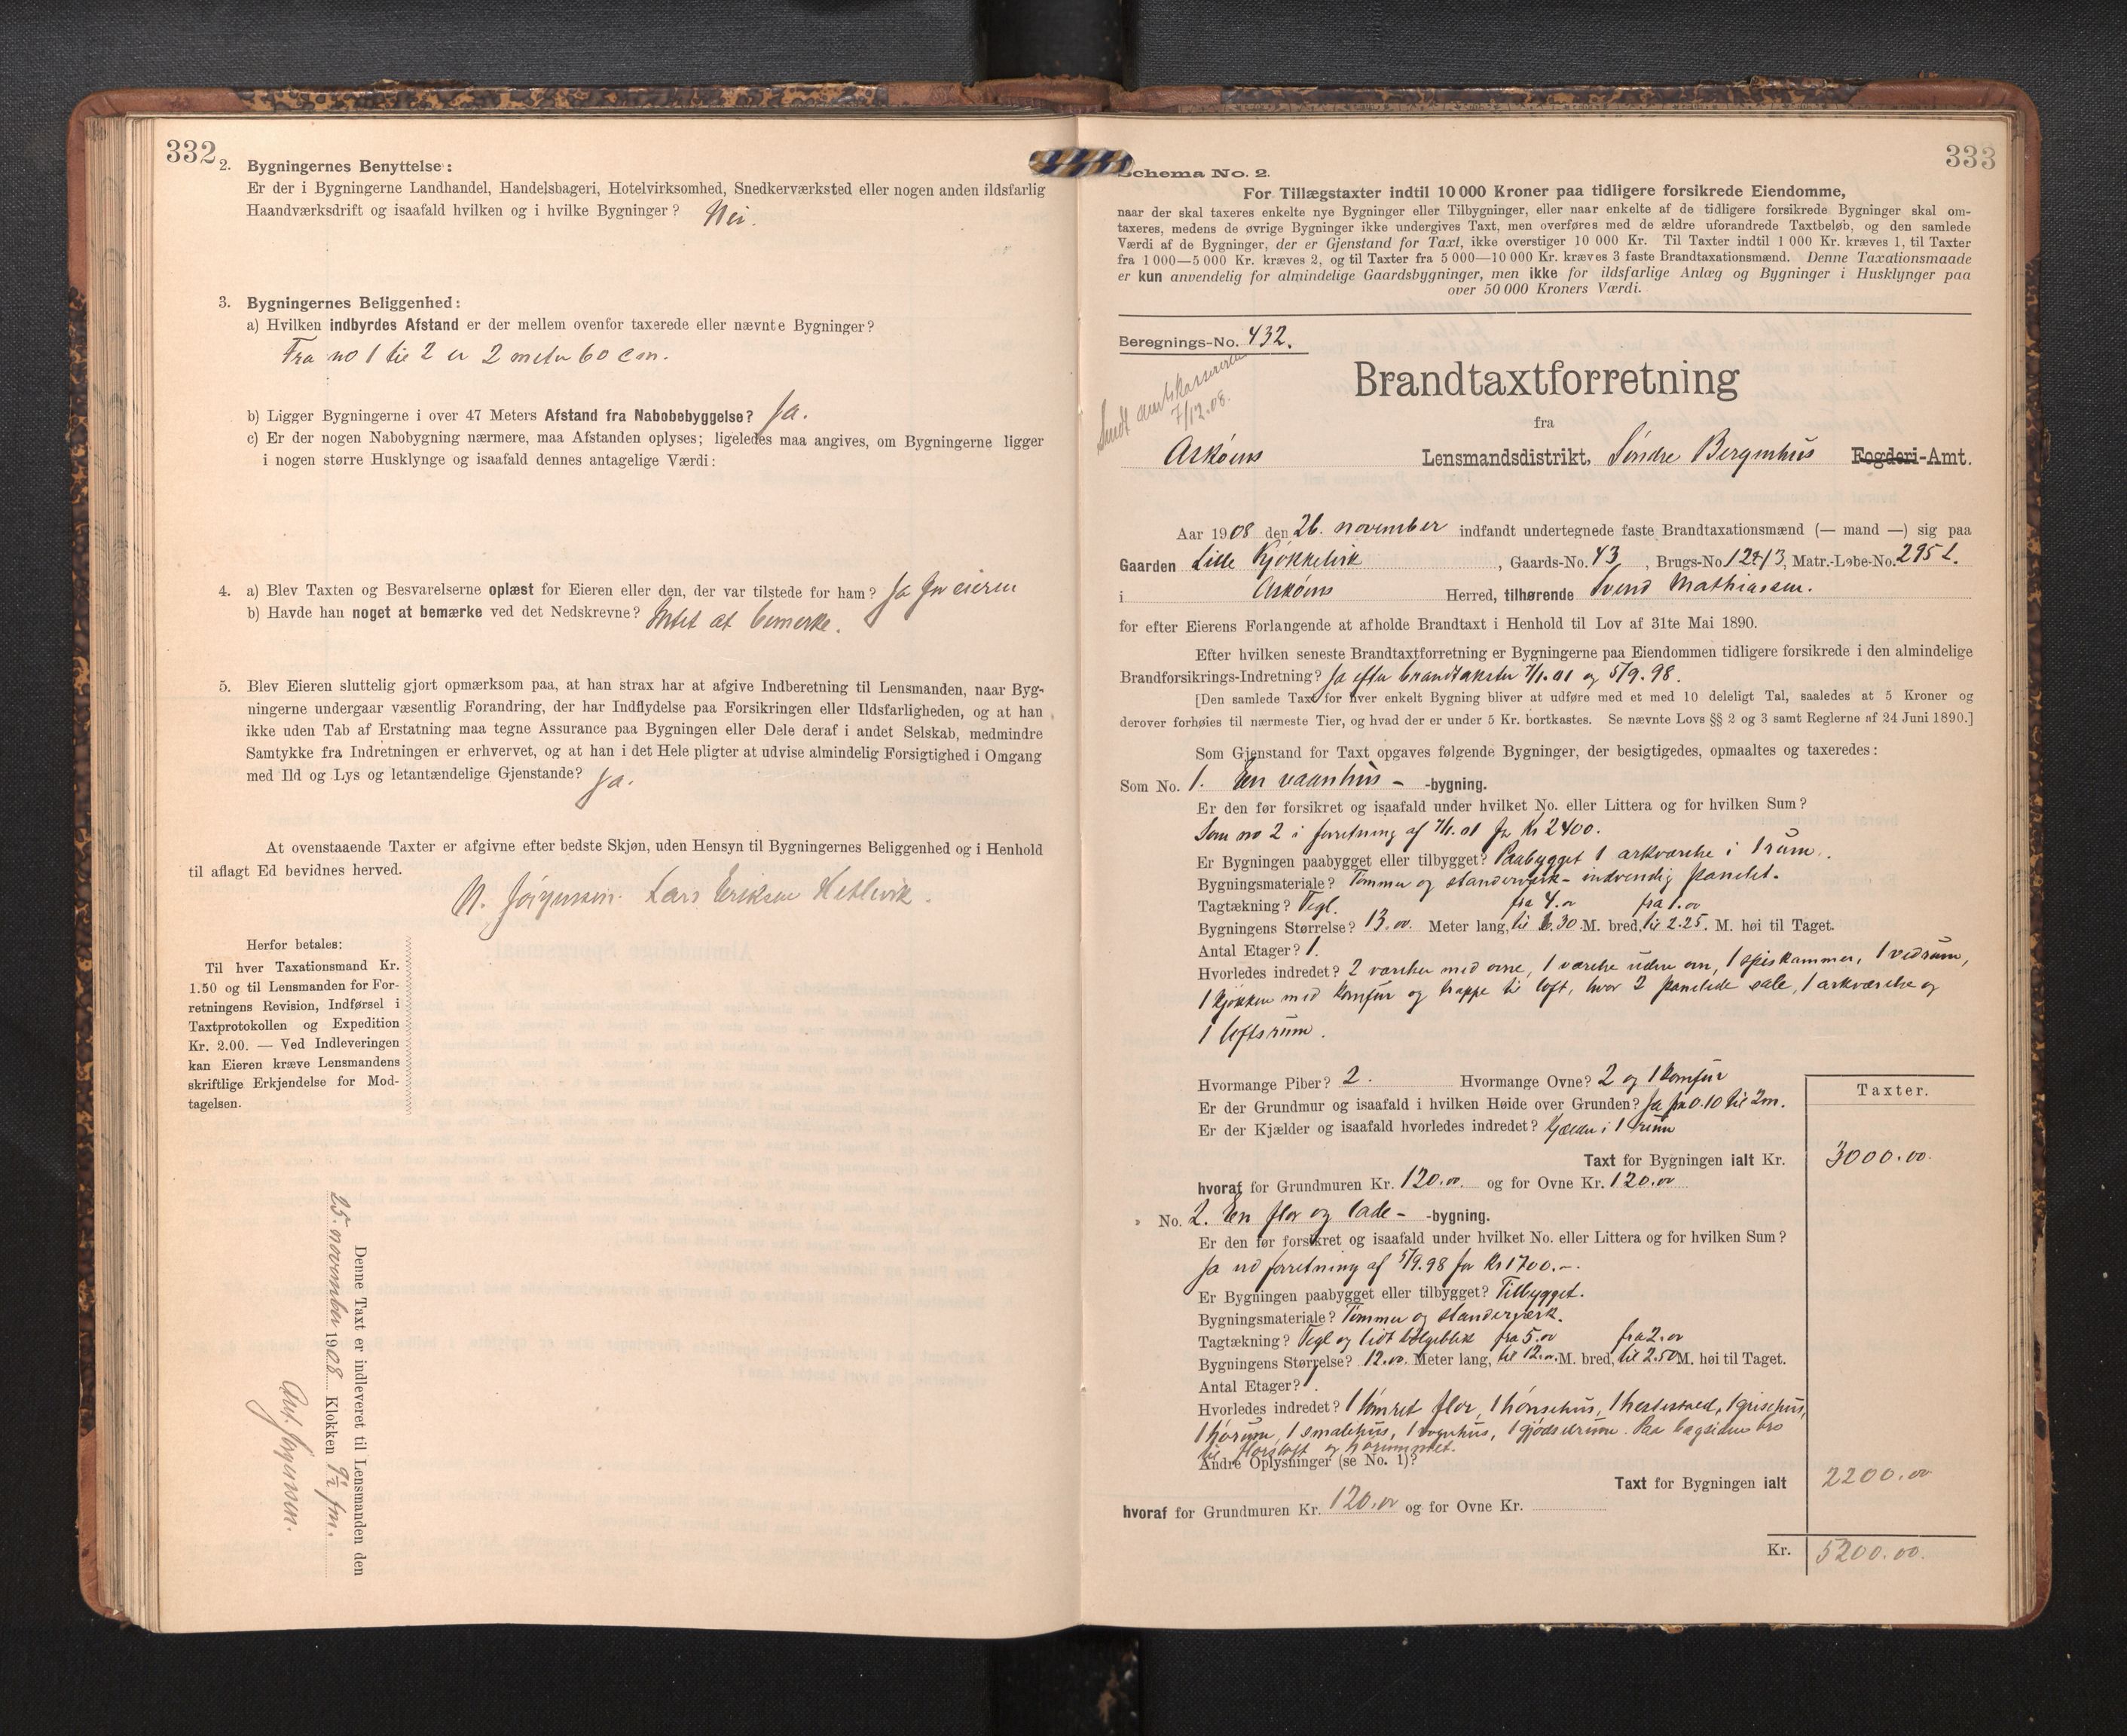 332
2. Bygningernes Benyttelse:
Er der i Bygningerne Landhandel, Handelsbageri, Hotelvirksomhed, Snedkerværksted eller nogen anden ildsfarlig
Haandværksdrift og isaafald hvilken og i hvilke Bygninger? Nei.
3. Bygningernes Beliggenhed:
a) Hvilken indbyrdes Afstand er der mellem ovenfor taxerede eller nævnte Bygninger?
Fra no 1 til 2 er 2 meter 60 cm.
b) Ligger Bygningerne i over 47 Meters Afstand fra Nabobebyggelse? Ja.
c) Er der nogen Nabobygning nærmere, maa Afstanden oplyses; ligeledes maa angives, om Bygningerne ligger
i nogen større Husklynge og isaafald dennes antagelige Værdi:
4. a) Blev Taxten og Besvarelserne oplæst for Eieren eller den, der var tilstede for ham? Ja for eieren
b) Havde han noget at bemærke ved det Nedskrevne? Intet at bemerke.
5. Blev Eieren sluttelig gjort opmærksom paa, at han strax har at afgive Indberetning til Lensmanden, naar Byg-
ningerne undergaar væsentlig Forandring, der har Indflydelse paa Forsikringen eller Ildsfarligheden, og at han
ikke uden Tab af Erstatning maa tegne Assurance paa Bygningen eller Dele deraf i andet Selskab, medmindre
Samtykke fra Indretningen er erhvervet, og at han i det Hele pligter at udvise almindelig Forsigtighed i Omgang
med Ild og Lys og letantændelige Gjenstande? Ja.
At ovenstaaende Taxter er afgivne efter bedste Skjøn, uden Hensyn til Bygningernes Beliggenhed og i Henhold
til aflagt Ed bevidnes herved.
N. Jørgensen. Lars Eriksen Hetlevik.
Herfor betales:
Til hver Taxationsmand Kr.
1.50 og til Lensmanden for For-
retningens Revision, Indførsel i
Taxtprotokollen og Expedition
Kr. 2.00. — Ved Indleveringen
kan Eieren kræve Lensmandens
skriftlige Erkjendelse for Mod-
tagelsen.
Denne Taxt er indleveret til Lensmanden den
25. november 1908 Klokken 9½ fm.
Jørgensen.
333
Schema No. 2.
For Tillægstaxter indtil 10 000 Kroner paa tidligere forsikrede Eiendomme,
naar der skal taxeres enkelte nye Bygninger eller Tilbygninger, eller naar enkelte af de tidligere forsikrede Bygninger skal om-
taxeres, medens de øvrige Bygninger ikke undergives Taxt, men overføres med de ældre uforandrede Taxtbeløb, og den samlede
Værdi af de Bygninger, der er Gjenstand for Taxt, ikke overstiger 10 000 Kr. Til Taxter indtil 1 000 Kr. kræves 1, til Taxter
fra 1 000—5 000 Kr. kræves 2, og til Taxter fra 5 000—10 000 Kr. kræves 3 faste Brandtaxationsmænd. Denne Taxationsmaade
er kun anvendelig for almindelige Gaardsbygninger, men ikke for ildsfarlige Anlæg og Bygninger i Husklynger paa
over 50 000 Kroners Værdi.
Beregnings-No. 432.
Sendt amtskassereren
7/12.08.
Brandtaxtforretning
fra
Askøens Lensmandsdistrikt, Søndre Bergenhus Fogderi-Amt.
Aar 1908 den 26. november indfandt undertegnede faste Brandtaxationsmænd (— mand —) sig paa
Gaarden Lille Kjøkkelvik, Gaards-No. 43, Brugs-No. 12+13, Matr.-Løbe-No. 295 l.
i Askøens Herred, tilhørende Svend Mathiassen.
for efter Eierens Forlangende at afholde Brandtaxt i Henhold til Lov af 31te Mai 1890.
Efter hvilken seneste Brandtaxtforretning er Bygningerne paa Eiendommen tidligere forsikrede i den almindelige
Brandforsikrings-Indretning? Ja efter brandtakster 7/1.01 og 5/9.98.
[Den samlede Taxt for hver enkelt Bygning bliver at udføre med et med 10 deleligt Tal, saaledes at 5 Kroner og
derover forhøies til nærmeste Tier, og hvad der er under 5 Kr. bortkastes. Se nævnte Lovs §§ 2 og 3 samt Reglerne af 24 Juni 1890.]
Som Gjenstand for Taxt opgaves følgende Bygninger, der besigtigedes, opmaaltes og taxeredes:
Som No. 1. En vaanhus - -bygning.
Er den før forsikret og isaafald under hvilket No. eller Littera og for hvilken Sum?
Som no 2 i forretning af 7/1.01 for Kr 2400.
Er Bygningen paabygget eller tilbygget? Paabygget 1 arkværelse i 1 rum.
Bygningsmateriale? Tømmer og standerverk - indvendig panelet.
Tagtækning? Tegl. fra 4.00 fra 1.00
Bygningens Størrelse? 13.00. Meter lang, til 6.30 M. bred, til 2.25. M. høi til Taget.
Antal Etager? 1.
Hvorledes indredet? 2 værelser med ovne, 1 værelse uden ovn, 1 spiskammer, 1 vedrum,
1 kjøkken med komfur og trappe til loft, hvor 2 panelede sale, 1 arkværelse og
1 loftsrum.
Hvormange Piber? 2. Hvormange Ovne? 2 og 1 komfur
Er der Grundmur og isaafald i hvilken Høide over Grunden? Ja fra 0.10 til 2m.
Er der Kjælder og isaafald hvorledes indredet? Kjælder i 1 rum
Taxter.
Taxt for Bygningen ialt Kr. 3000.00.
hvoraf for Grundmuren Kr. 120.00 og for Ovne Kr. 120.00
» No. 2. En flor og lade - -bygning.
Er den før forsikret og isaafald under hvilket No. eller Littera og for hvilken Sum?
Ja ved forretning af 5/9.98 for Kr 1700.-.
Er Bygningen paabygget eller tilbygget? Tilbygget.
Bygningsmateriale? Tømmer og standerverk.
Tagtækning? Tegl og lidt bølgeblik fra 5.00 fra 2.00
Bygningens Størrelse? 12.00. Meter lang, til 12.00. M. bred, til 2.50 M. høi til Taget.
Antal Etager? 1.
Hvorledes indredet? 1 tømret flor, 1 hønsehus, 1 hestestald, 1 grisehus,
1 hørum, 1 smalehus, 1 vognhus, 1 gjødselrum. Paa bagsiden bro
til florsloft og hørummet.
Andre Oplysninger (se No. 1)?
Taxt for Bygningen ialt 2200.00
hvoraf for Grundmuren Kr. 120.00 og for Ovne Kr.
Kr. 5200.00.